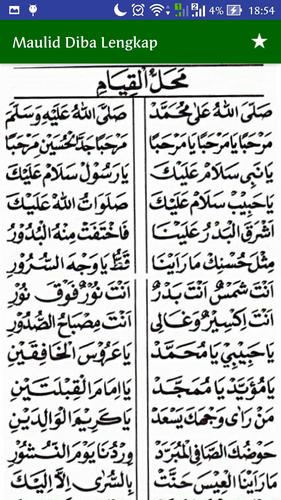 4% 18:54
Maulid Diba Lengkap
مَحَلُّ الْقِيَامِ
صَلَّى اللهُ عَلَى مُحَمَّدْ صَلَّى اللهُ عَلَيْهِ وَسَلَّمْ
مَرْحَبًا يَامَرْحَبًا يَامَرْحَبًا مَرْحَبًا جَدَّ الْحُسَيْنِ مَرْحَبًا
يَانَبِي سَلَامْ عَلَيْكَ يَارَسُوْلْ سَلَامْ عَلَيْكَ
يَاحَبِيْبْ سَلَامْ عَلَيْكَ صَلَوَاتُ اللهْ عَلَيْكَ
اَشْرَقَ الْبَدْرُ عَلَيْنَا فَاخْتَفَتْ مِنْهُ الْبُدُوْرُ
مِثْلَ حُسْنِكْ مَارَاَيْنَا قَطُّ يَاوَجْهَ السُّرُوْرِ
اَنْتَ شَمْسٌ اَنْتَ بَدْرٌ اَنْتَ نُوْرٌ فَوْقَ نُوْرٍ
اَنْتَ اِكْسِيْرٌ وَغَالِي اَنْتَ مِصْبَاحُ الصُّدُوْرِ
يَاحَبِيْبِي يَامُحَمَّدْ يَاعَرُوْسَ الْخَافِقَيْنِ
يَامُؤَيَّدْ يَامُمَجَّدْ يَااِمَامَ الْقِبْلَتَيْنِ
مَنْ رَاَى وَجْهَكَ يَسْعَدْ يَاكَرِيْمَ الْوَالِدَيْنِ
حَوْضُكَ الصَّافِى الْمُبَرَّدْ وِرْدُنَا يَوْمَ النُّشُوْرِ
مَارَاَيْنَا الْعِيْسَ حَنَّتْ بِالسُّرَى اِلَّا اِلَيْكَ